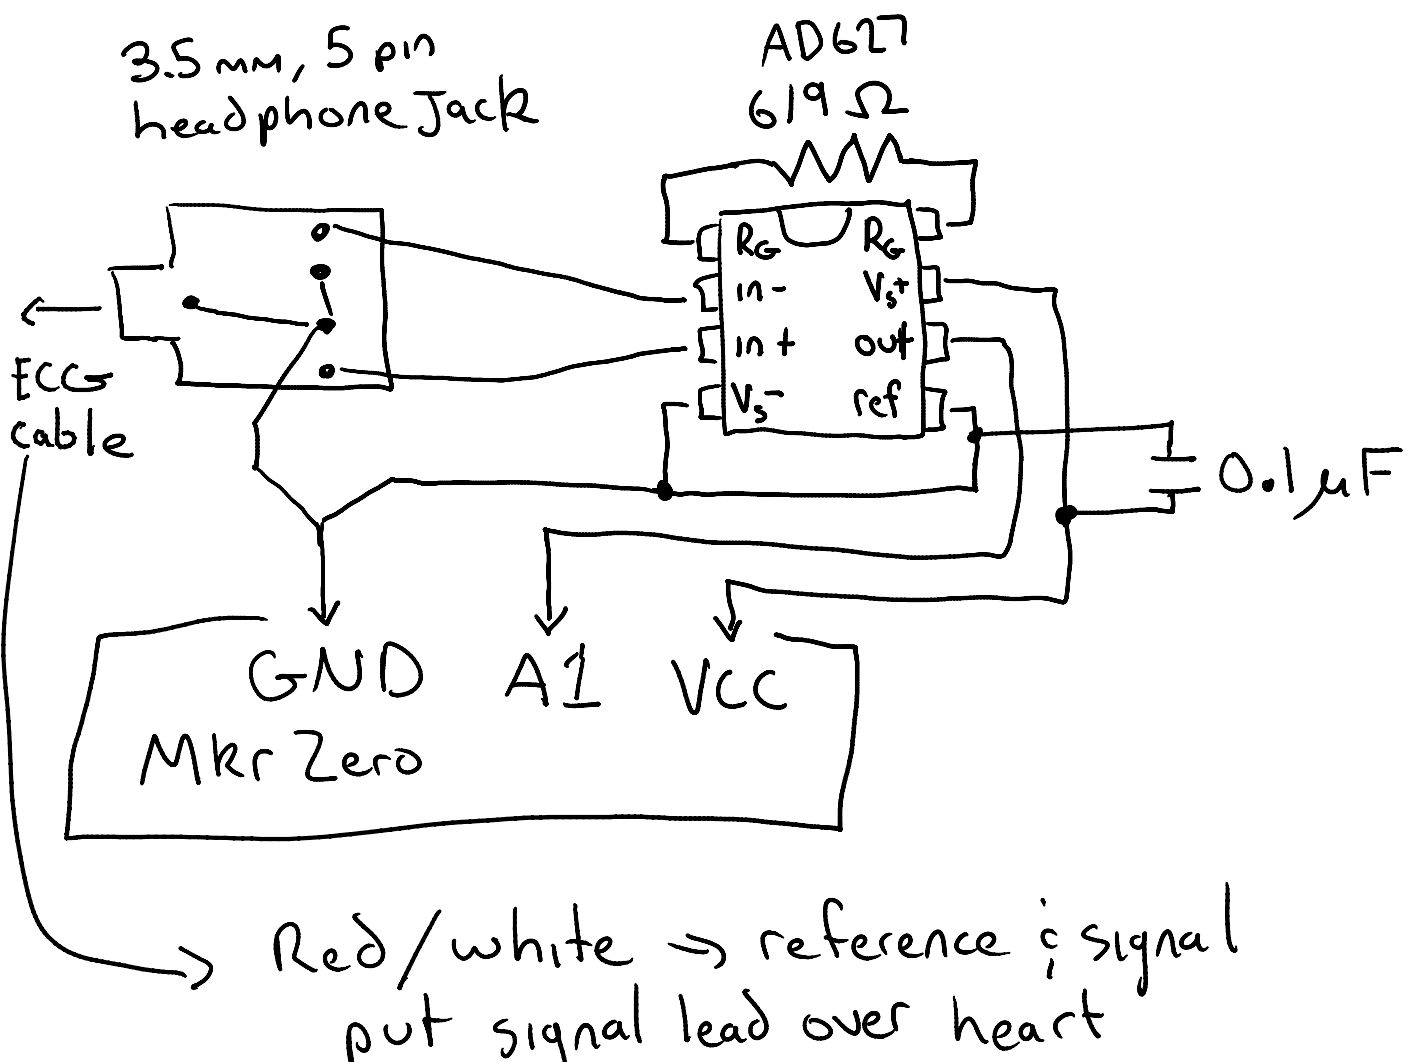 3.5mm, 5 pin
headphone Jack
AD627
619 Ω
RG
RG
in-
Vs+
in+
out
Vs-
ref
ECG
cable
0.1μF
GND
A1
VCC
Mkr Zero
Red/white → reference & signal
put signal lead over heart